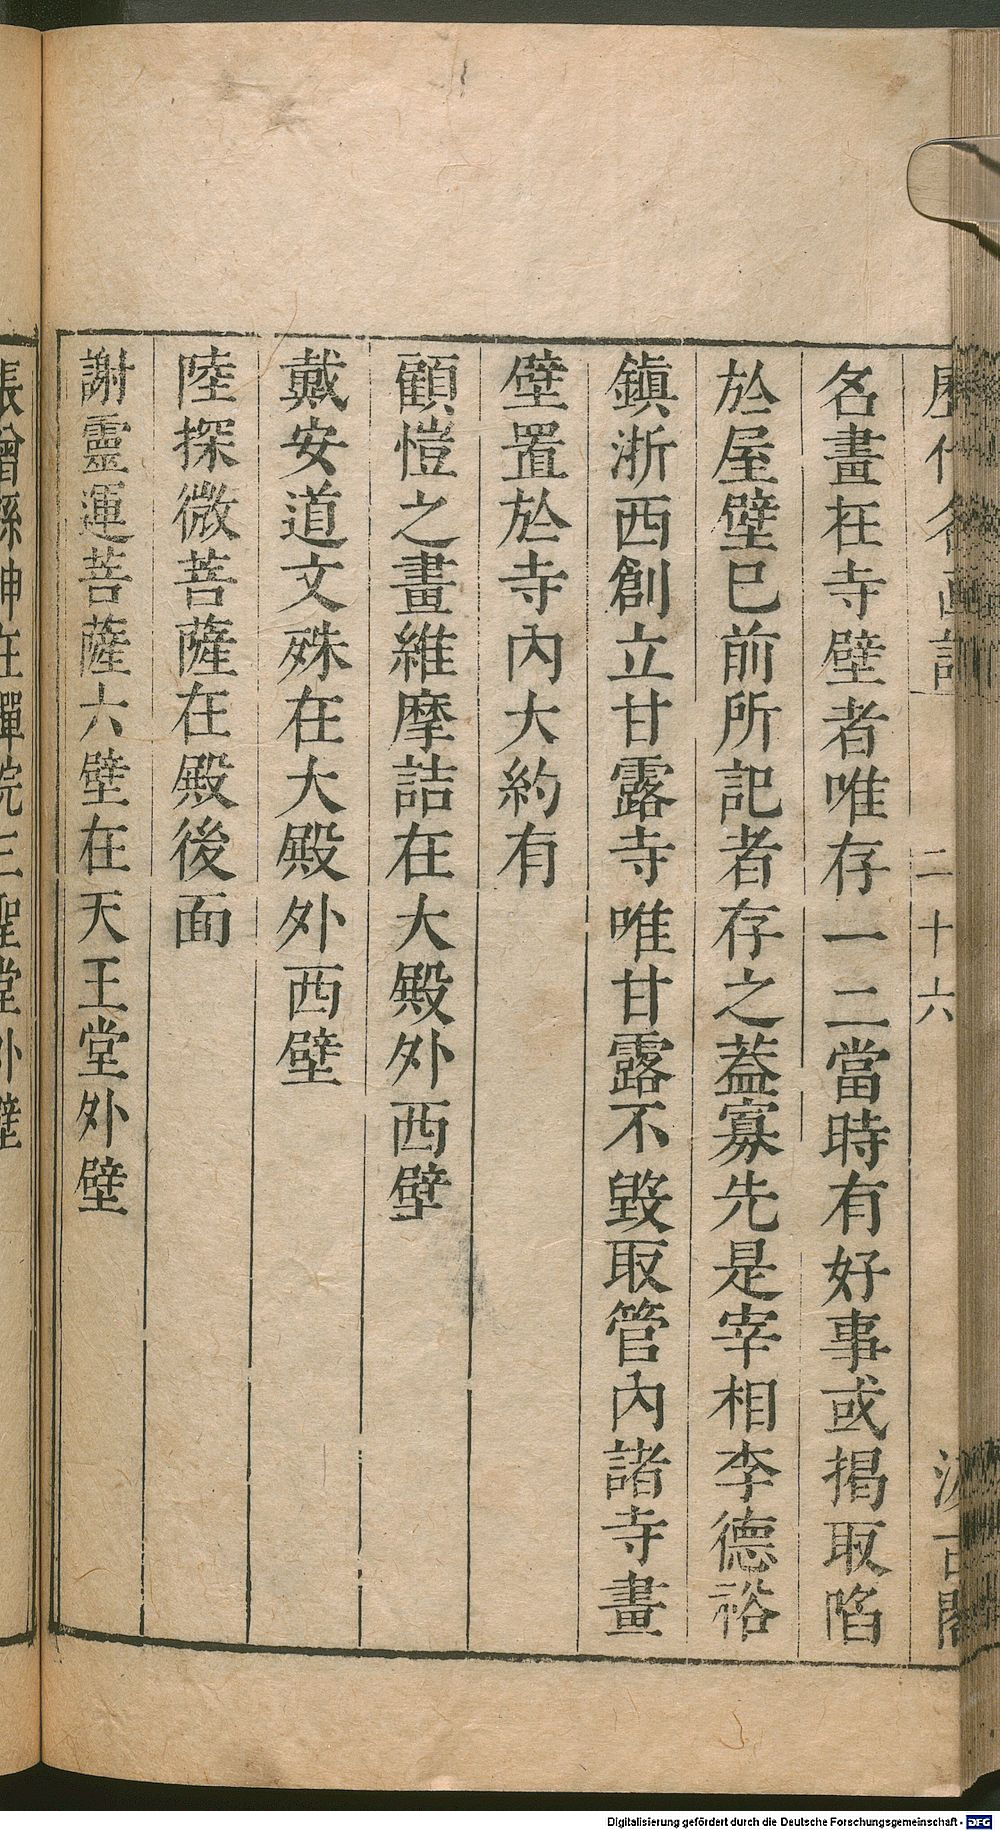 名畫在寺壁者唯存一二當時有好事或揭取陷
於屋壁已前所記者存之蓋寡先是宰相李德裕
鎮浙西創立甘露寺唯甘露不毀取管內諸寺畫
壁置於寺內大約有
顧愷之畫維摩詰在大殿外西壁
戴安道文殊在大殿外西壁
陸探微菩薩在殿後面
謝靈運菩薩六壁在天王堂外壁
張僧繇神在禪院三聖堂外壁
二十六
Digitalisierung gefördert durch die Deutsche Forschungsgemeinschaft - DFG